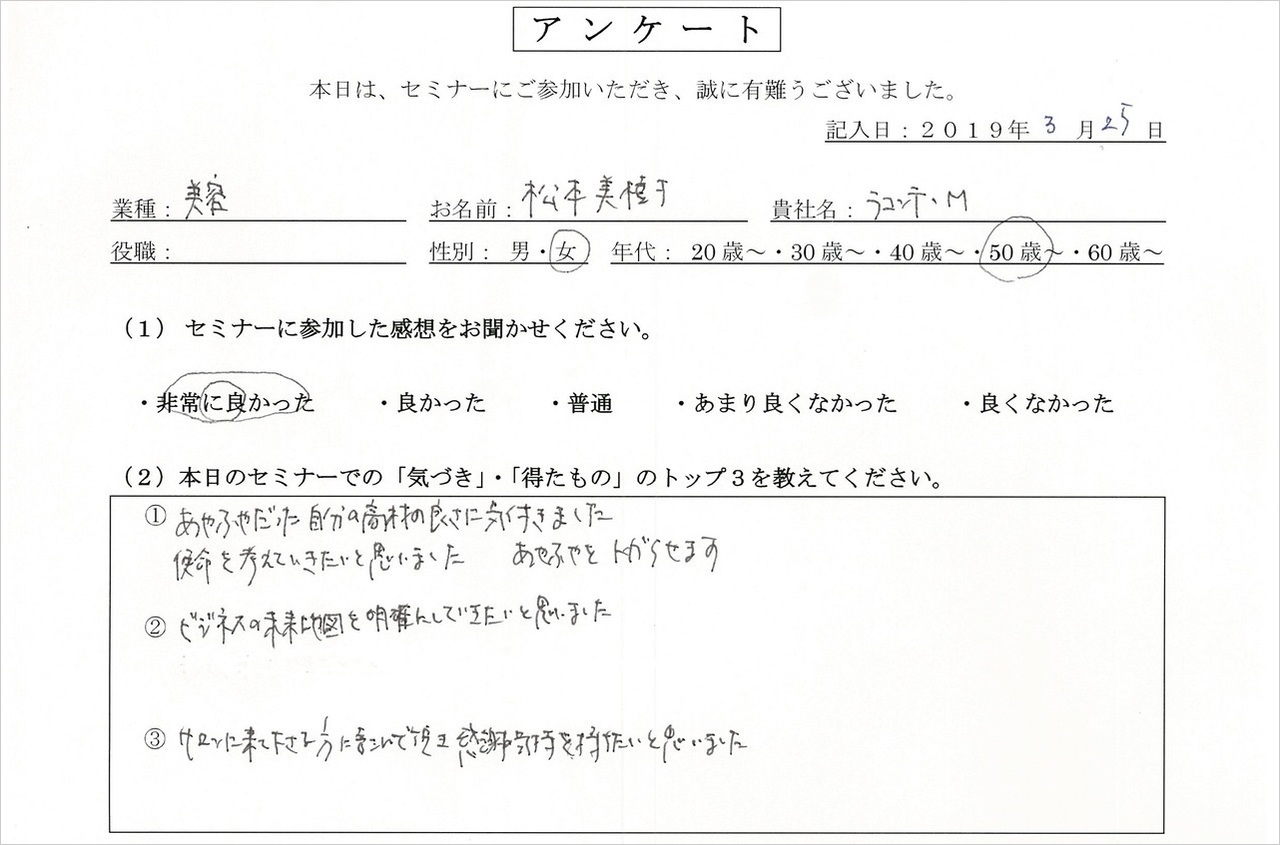 アンケート
本日は、セミナーにご参加いただき、誠に有難うございました。
記入日：2019年 3 月 25 日
業種：美容 お名前：松本美樹子 貴社名：ラコンテ・M
役職： 性別： 男・女 年代： 20歳～・30歳～・40歳～・50歳～・60歳～
（1） セミナーに参加した感想をお聞かせください。
・非常に良かった ・良かった ・普通 ・あまり良くなかった ・良くなかった
（2）本日のセミナーでの「気づき」・「得たもの」のトップ3を教えてください。
① あやふやだった自分の商材の良さに気付きました
使命を考えていきたいと思いました あやふやをトガらせます
② ビジネスの未来地図を明確にしていきたいと思いました
③ サロンに来て下さる方に喜こんで頂き感謝の気持を持たいと思いました